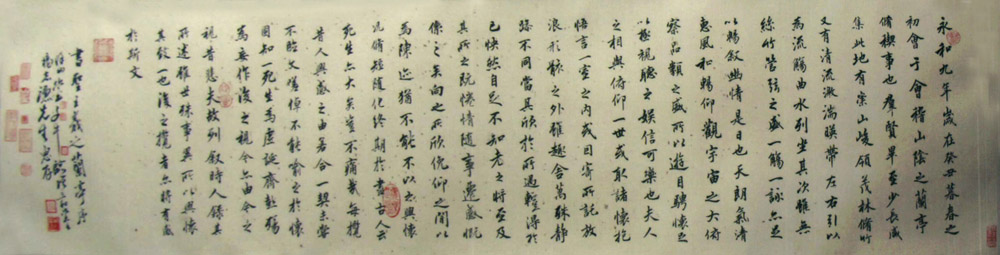 永和九年歲在癸丑暮春之
初會于會稽山陰之蘭亭
脩禊事也群賢畢至少長咸
集此地有崇山峻領茂林脩竹
又有清流激湍暎帶左右引以
為流觴曲水列坐其次雖無
絲竹管弦之盛一觴一詠亦足
以暢敘幽情是日也天朗氣清
惠風和暢仰觀宇宙之大俯
察品類之盛所以遊目騁懷足
以極視聽之娛信可樂也夫人
之相與俯仰一世或取諸懷抱
悟言一室之內或因寄所託放
浪形骸之外雖趣舍萬殊靜
躁不同當其欣於所遇暫得於
己快然自足不知老之將至及
其所之既倦情隨事遷感慨
係之矣向之所欣俛仰之間以
為陳迹猶不能不以之興懷
況脩短隨化終期於盡古人云
死生亦大矣豈不痛哉每攬
昔人興感之由若合一契未嘗
不臨文嗟悼不能喻之於懷
固知一死生為虛誕齊彭殤
為妄作後之視今亦由今之
視昔悲夫故列敘時人錄其
所述雖世殊事異所以興懷
其致一也後之攬者亦將有感
於斯文
書聖王羲之蘭亭序
先生惠存